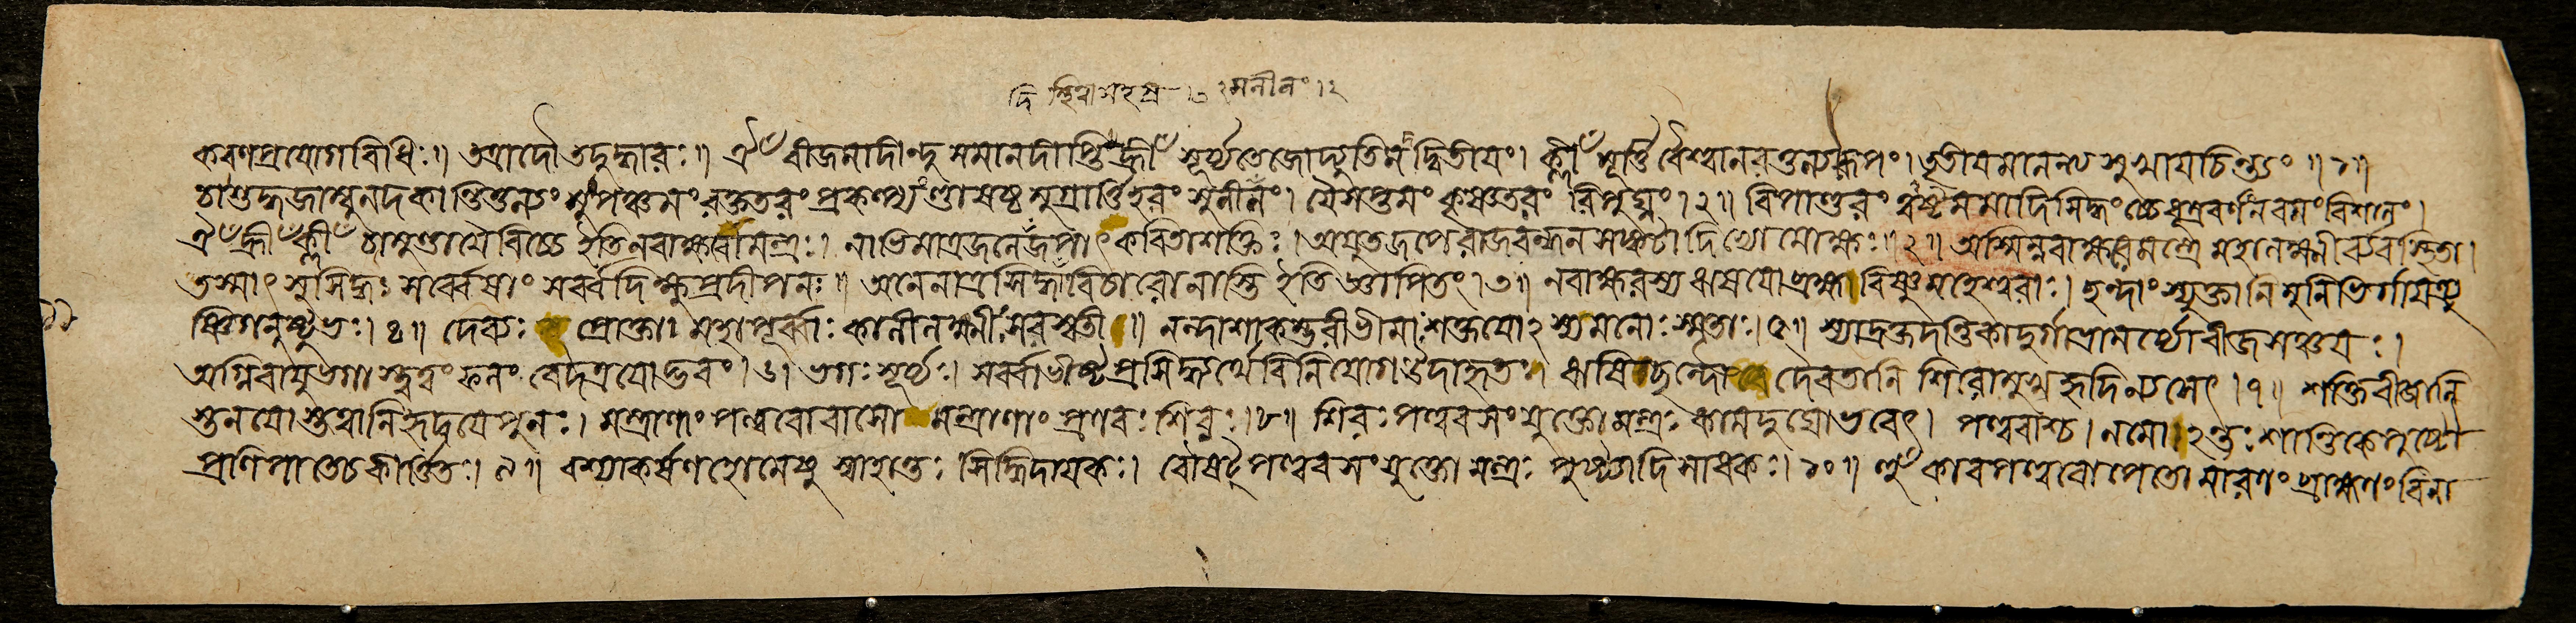 করণপ্রয়োগবিধিঃ॥ তত্রাদৌ তদুদ্ধারঃ॥ ঐঁ বীজমাদীন্দুসমানদীপ্তিং হ্রীঁ সূর্য্যতেজোদ্যুতিমদ্বিতীয়ং। ক্লীঁ মূর্ত্তিবৈশ্বানরতুল্যরূপং। তৃতীয়মানন্ত্যসুখায়চিন্ত্যং॥১॥
চাংশুদ্ধজাম্বুনদকান্তিতুল্যং মুংপঞ্চমং রক্ততরং প্রকল্প্যং ণ্ডাংষষ্ঠমুগ্রার্ত্তিহরং সুনীলং। য়ৈসপ্তমং কৃষ্ণতরং রিপুঘ্নং।২॥ বিপাণ্ডুরং অষ্টমমাদিসিদ্ধং চ্চে ধূম্রবর্ণং নবমং বিশালং।
ঐঁ হ্রীঁ ক্লীঁ চামুণ্ডায়ৈ বিচ্চে ইতি নবাক্ষরমন্ত্রঃ। নাভিমাত্রজলে কবিতাশক্তিঃ। অযুতজপে রাজবন্ধনসঙ্কটাদি মোক্ষঃ॥২॥ অস্মিন্নবাক্ষরমন্ত্রে মহালক্ষ্মীর্ব্যবস্থিতা।
তস্মাৎ সুসিদ্ধঃ সর্ব্বেষাং সর্ব্বদিক্ষুপ্রদীপনঃ॥ অনেনাত্র সিদ্ধাবিচারো নাস্তি ইতি জ্ঞাপিতং।৩॥ নবাক্ষরস্য ঋষয়ো ব্রহ্মাবিষ্ণুমহেশ্বরাঃ। ছন্দাংস্যুক্তানি মুনিভির্গায়ত্র্যু
ষ্ণিগনুষ্টুভঃ।৪॥ দেব্যঃ প্রোক্তা মহাপূর্ব্বাঃ কালীলক্ষ্মীসরস্বতী॥ নন্দাশাকম্ভরীভীমাঃ শক্তয়োঽস্য মনোঃ স্মৃতাঃ।৫॥ স্যাদ্রক্তদন্তিকাদুর্গাভ্রামর্য্যোবীজসঞ্চয়ঃ।
অগ্নিবায়ুভগাস্তত্ত্বং ফলং বেদত্রয়োদ্ভবং।৬। ভগঃ সূর্য্যঃ। সর্ব্বাভীষ্টপ্রসিদ্ধ্যর্থে বিনিয়োগউদাহৃতঃ। ঋষিচ্ছন্দো দৈবতানি শিরোমুখহৃদিন্যসেৎ।৭॥ শক্তিবীজানি
স্তনয়োস্তত্ত্বানি হৃদয়ে পুনঃ। মন্ত্রাণাং পল্লবো বাসো মন্ত্রাণাং প্রণবঃ শিরঃ।৮॥ শিরঃপল্লবসংযুক্তো মন্ত্রঃ কামদুঘো ভবেৎ। পল্লবাশ্চ। নমোঽন্তঃ শান্তিকে পুষ্টৌ
প্রণিপাতে চ কীর্ত্তিতঃ।৯॥ বশ্যাকর্ষণহোমেষু স্বাহান্তঃ সিদ্ধিদায়কঃ। বৌষট্ পল্লবসংযুক্তো মন্ত্রঃ পুষ্ট্যাদিসাধকঃ।১০॥ হুঁ কারপল্লবোপেতো মারণং ব্রাহ্মণং বিনা